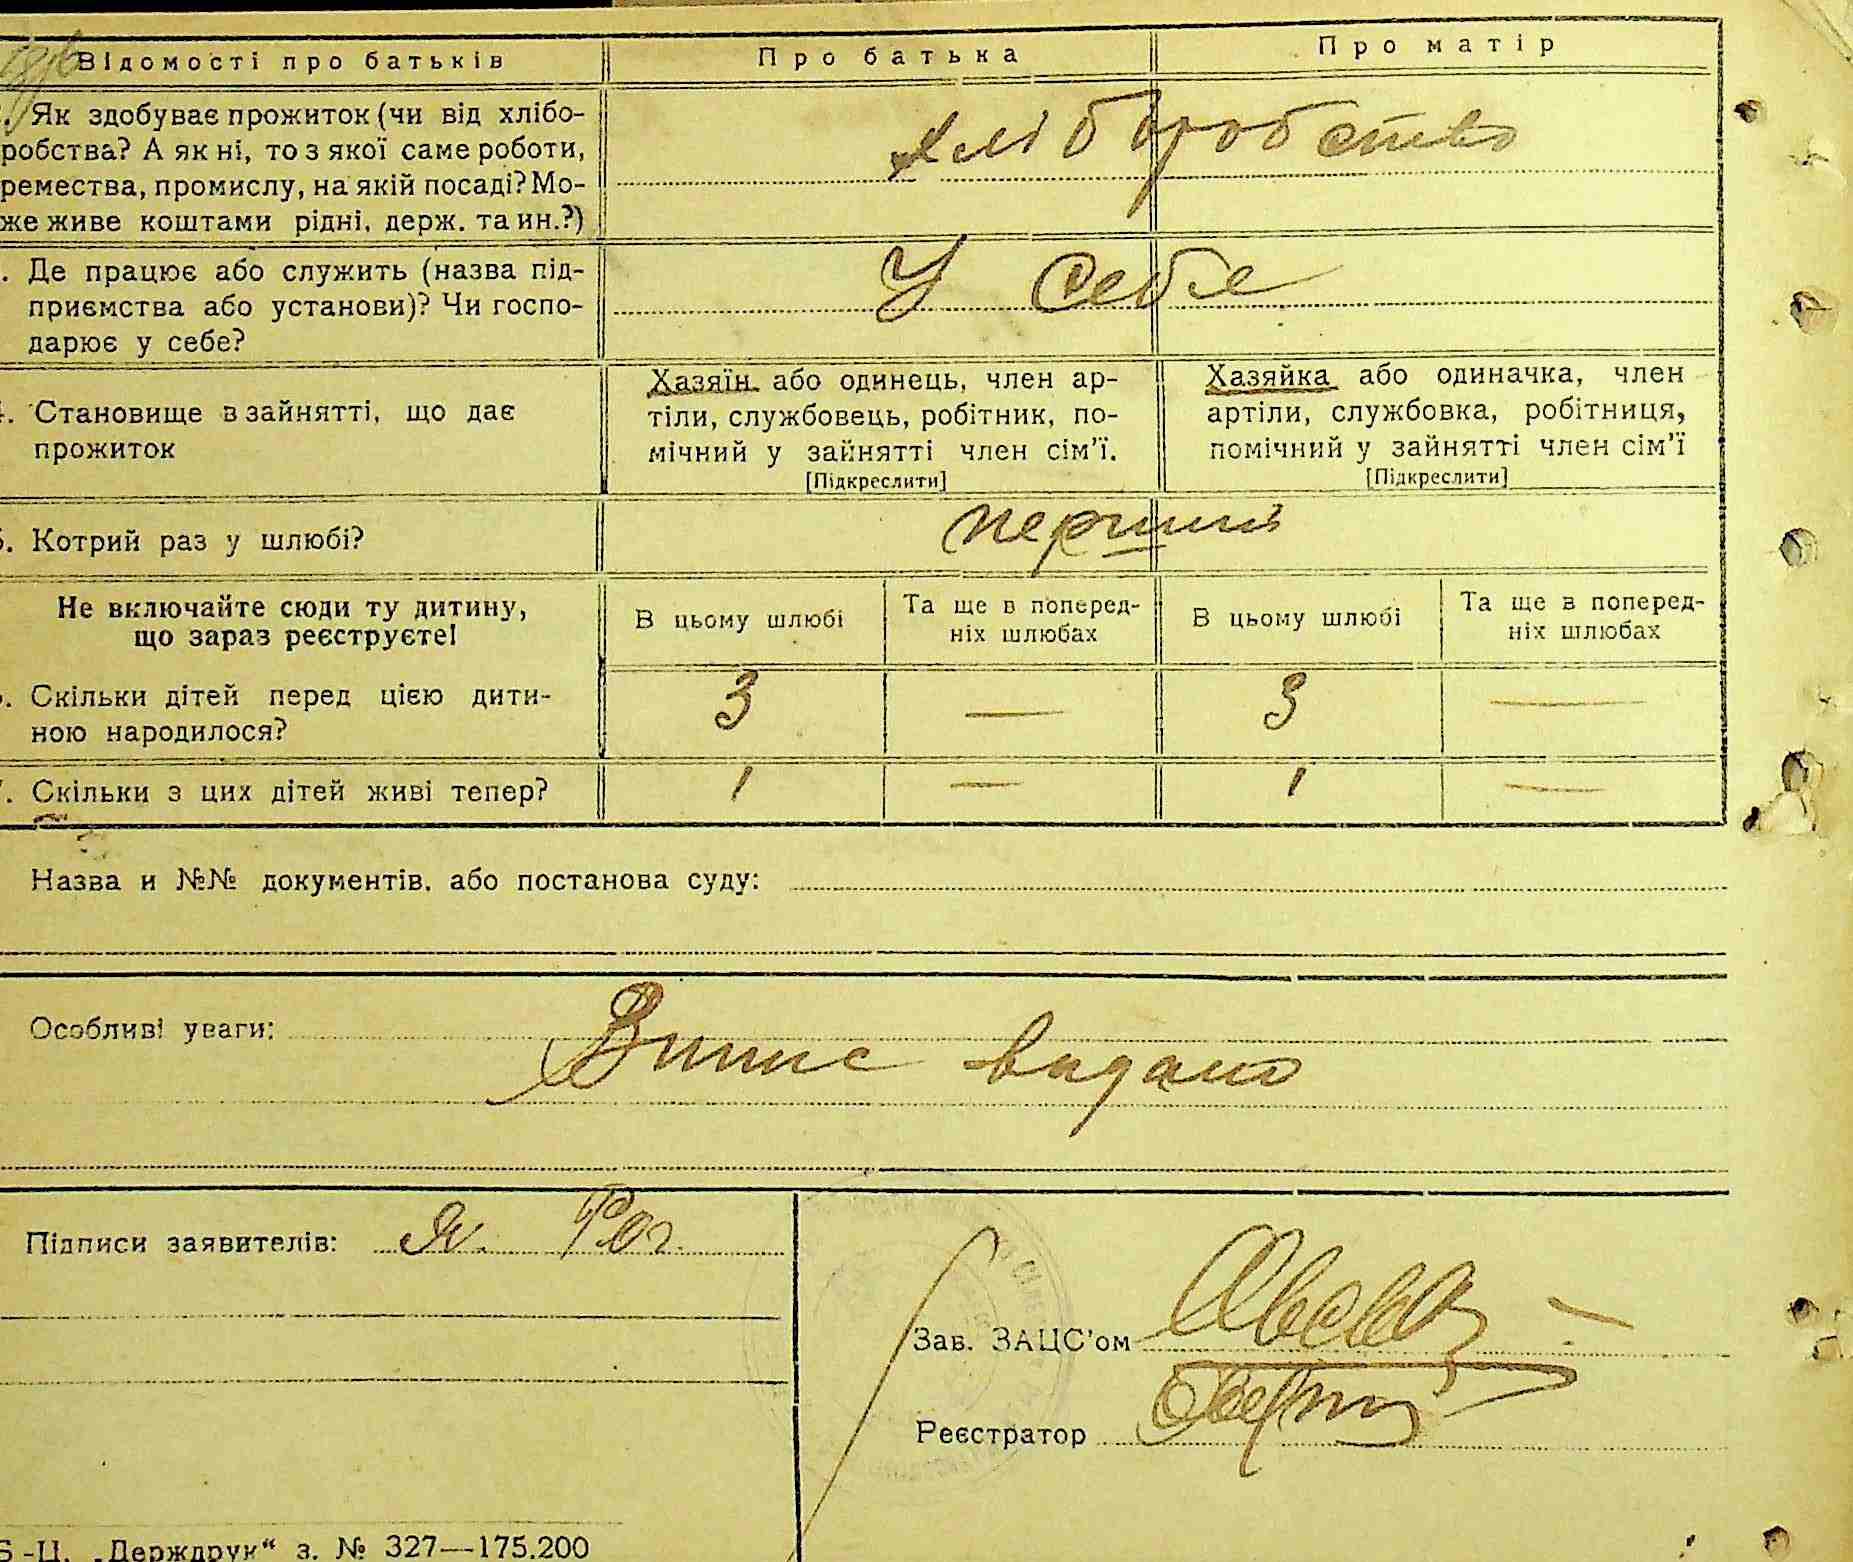 Відомості про батьків
Про батька
Про матір
Як здобуває прожиток (чи від хлібо-
робства? А як ні, то з якої саме роботи,
ремества, промислу, на якій посаді? Мо-
же живе коштами рідні, держ. та ин.?)
хліборобство
Де працює або служить (назва під-
приємства або установи)? Чи госпо-
дарює у себе?
У себе
4. Становище в зайнятті, що дає
прожиток
Хазяїн або одинець, член ар-
тіли, службовець, робітник, по-
мічний у зайнятті член сім'ї.
[Підкреслити]
Хазяйка або одиначка, член
артіли, службовка, робітниця,
помічний у зайнятті член сім'ї
[Підкреслити]
5. Котрий раз у шлюбі?
перший
Не включайте сюди ту дитину,
що зараз реєструєте!
В цьому шлюбі
Та ще в поперед-
ніх шлюбах
В цьому шлюбі
Та ще в поперед-
ніх шлюбах
Скільки дітей перед цією дити-
ною народилося?
3 — 3 —
7. Скільки з цих дітей живі тепер?
1 — 1 —
Назва и №№ документів, або постанова суду:
Особливі уваги:
Випис видано
Підписи заявителів:
Зав. ЗАЦС'ом
Реєстратор
Б-Ц. „Держдрук“ з. № 327—175.200